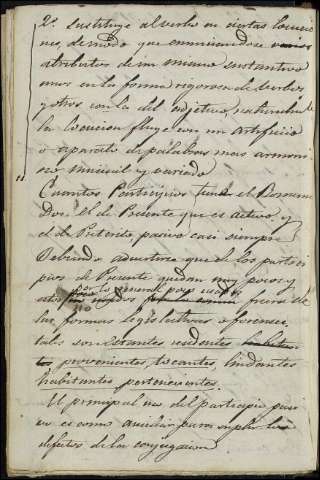 2.° Sustituye al verbo en ciertas locucio
nes de modo que enunciandose varios
atributos de un mismo sustantivo
unos en la forma rigorosa de verbos
y otros con la del adjetivo,
la locucion fluye con un artificio
o aparato de palabras mas armoni
co y variado
Cuantos Participios tiene el Romance
Dos: él de Presente que es activo y
el de Preterito pasivo casi siempre
Debiendo advertirse que de los partici
pios de Presente quedan muy pocos y
estos por lo general poco usados fuera de
las formas legislativas o forenses
tales son Estantes residentes
provenientes, tocantes, lindantes
habitantes pertenecientes.
El principal uso del participio pasi
vo es como auxiliar para suplir los
defectos de la conjugacion